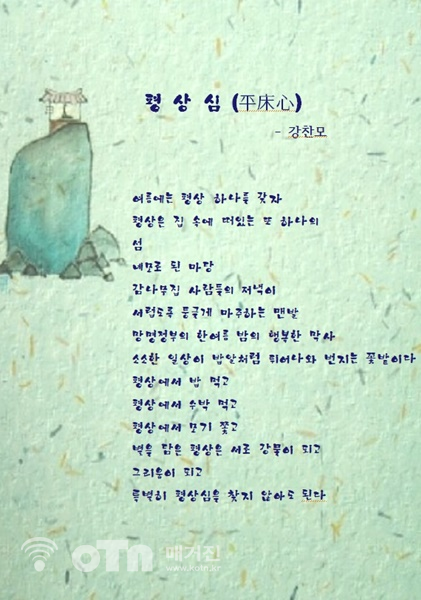 평 상 심 (平床心)
- 강찬모
여름에는 평상 하나를 갖자
평상은 집 속에 떠있는 또 하나의
섬
네모로 된 마당
감나무집 사람들의 저녁이
서럽도록 둥글게 마주하는 맨발
망명정부의 한여름 밤의 행복한 막사
소소한 일상이 밥알처럼 피어나와 번지는 꽃밭이다
평상에서 밥 먹고
평상에서 수박 먹고
평상에서 모기 쫓고
별을 담은 평상은 서로 강물이 되고
그리움이 되고
특별히 평상심을 찾지 않아도 된다
OTN 매거진
www.kotn.kr